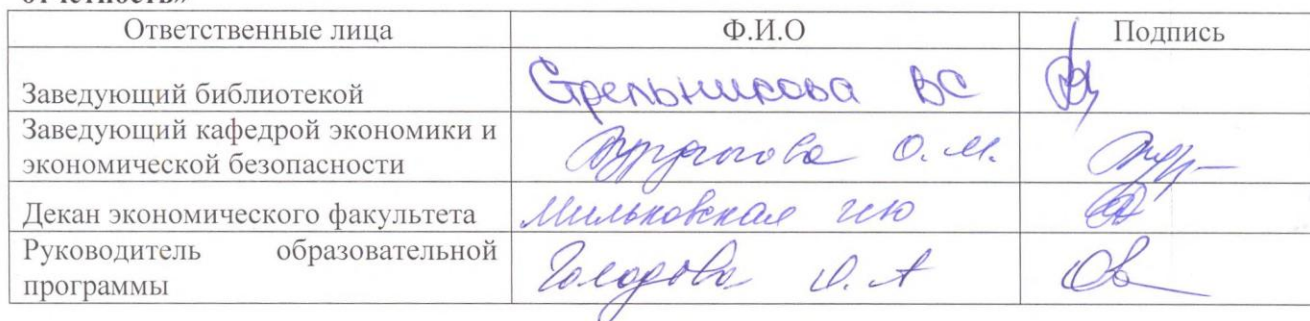 отчетность»
Ответственные лица Ф.И.О Подпись
Заведующий библиотекой Стрельникова ВС
Заведующий кафедрой экономики и
экономической безопасности О.М.
Декан экономического факультета Мильковская
Руководитель образовательной
программы Голодова О.А